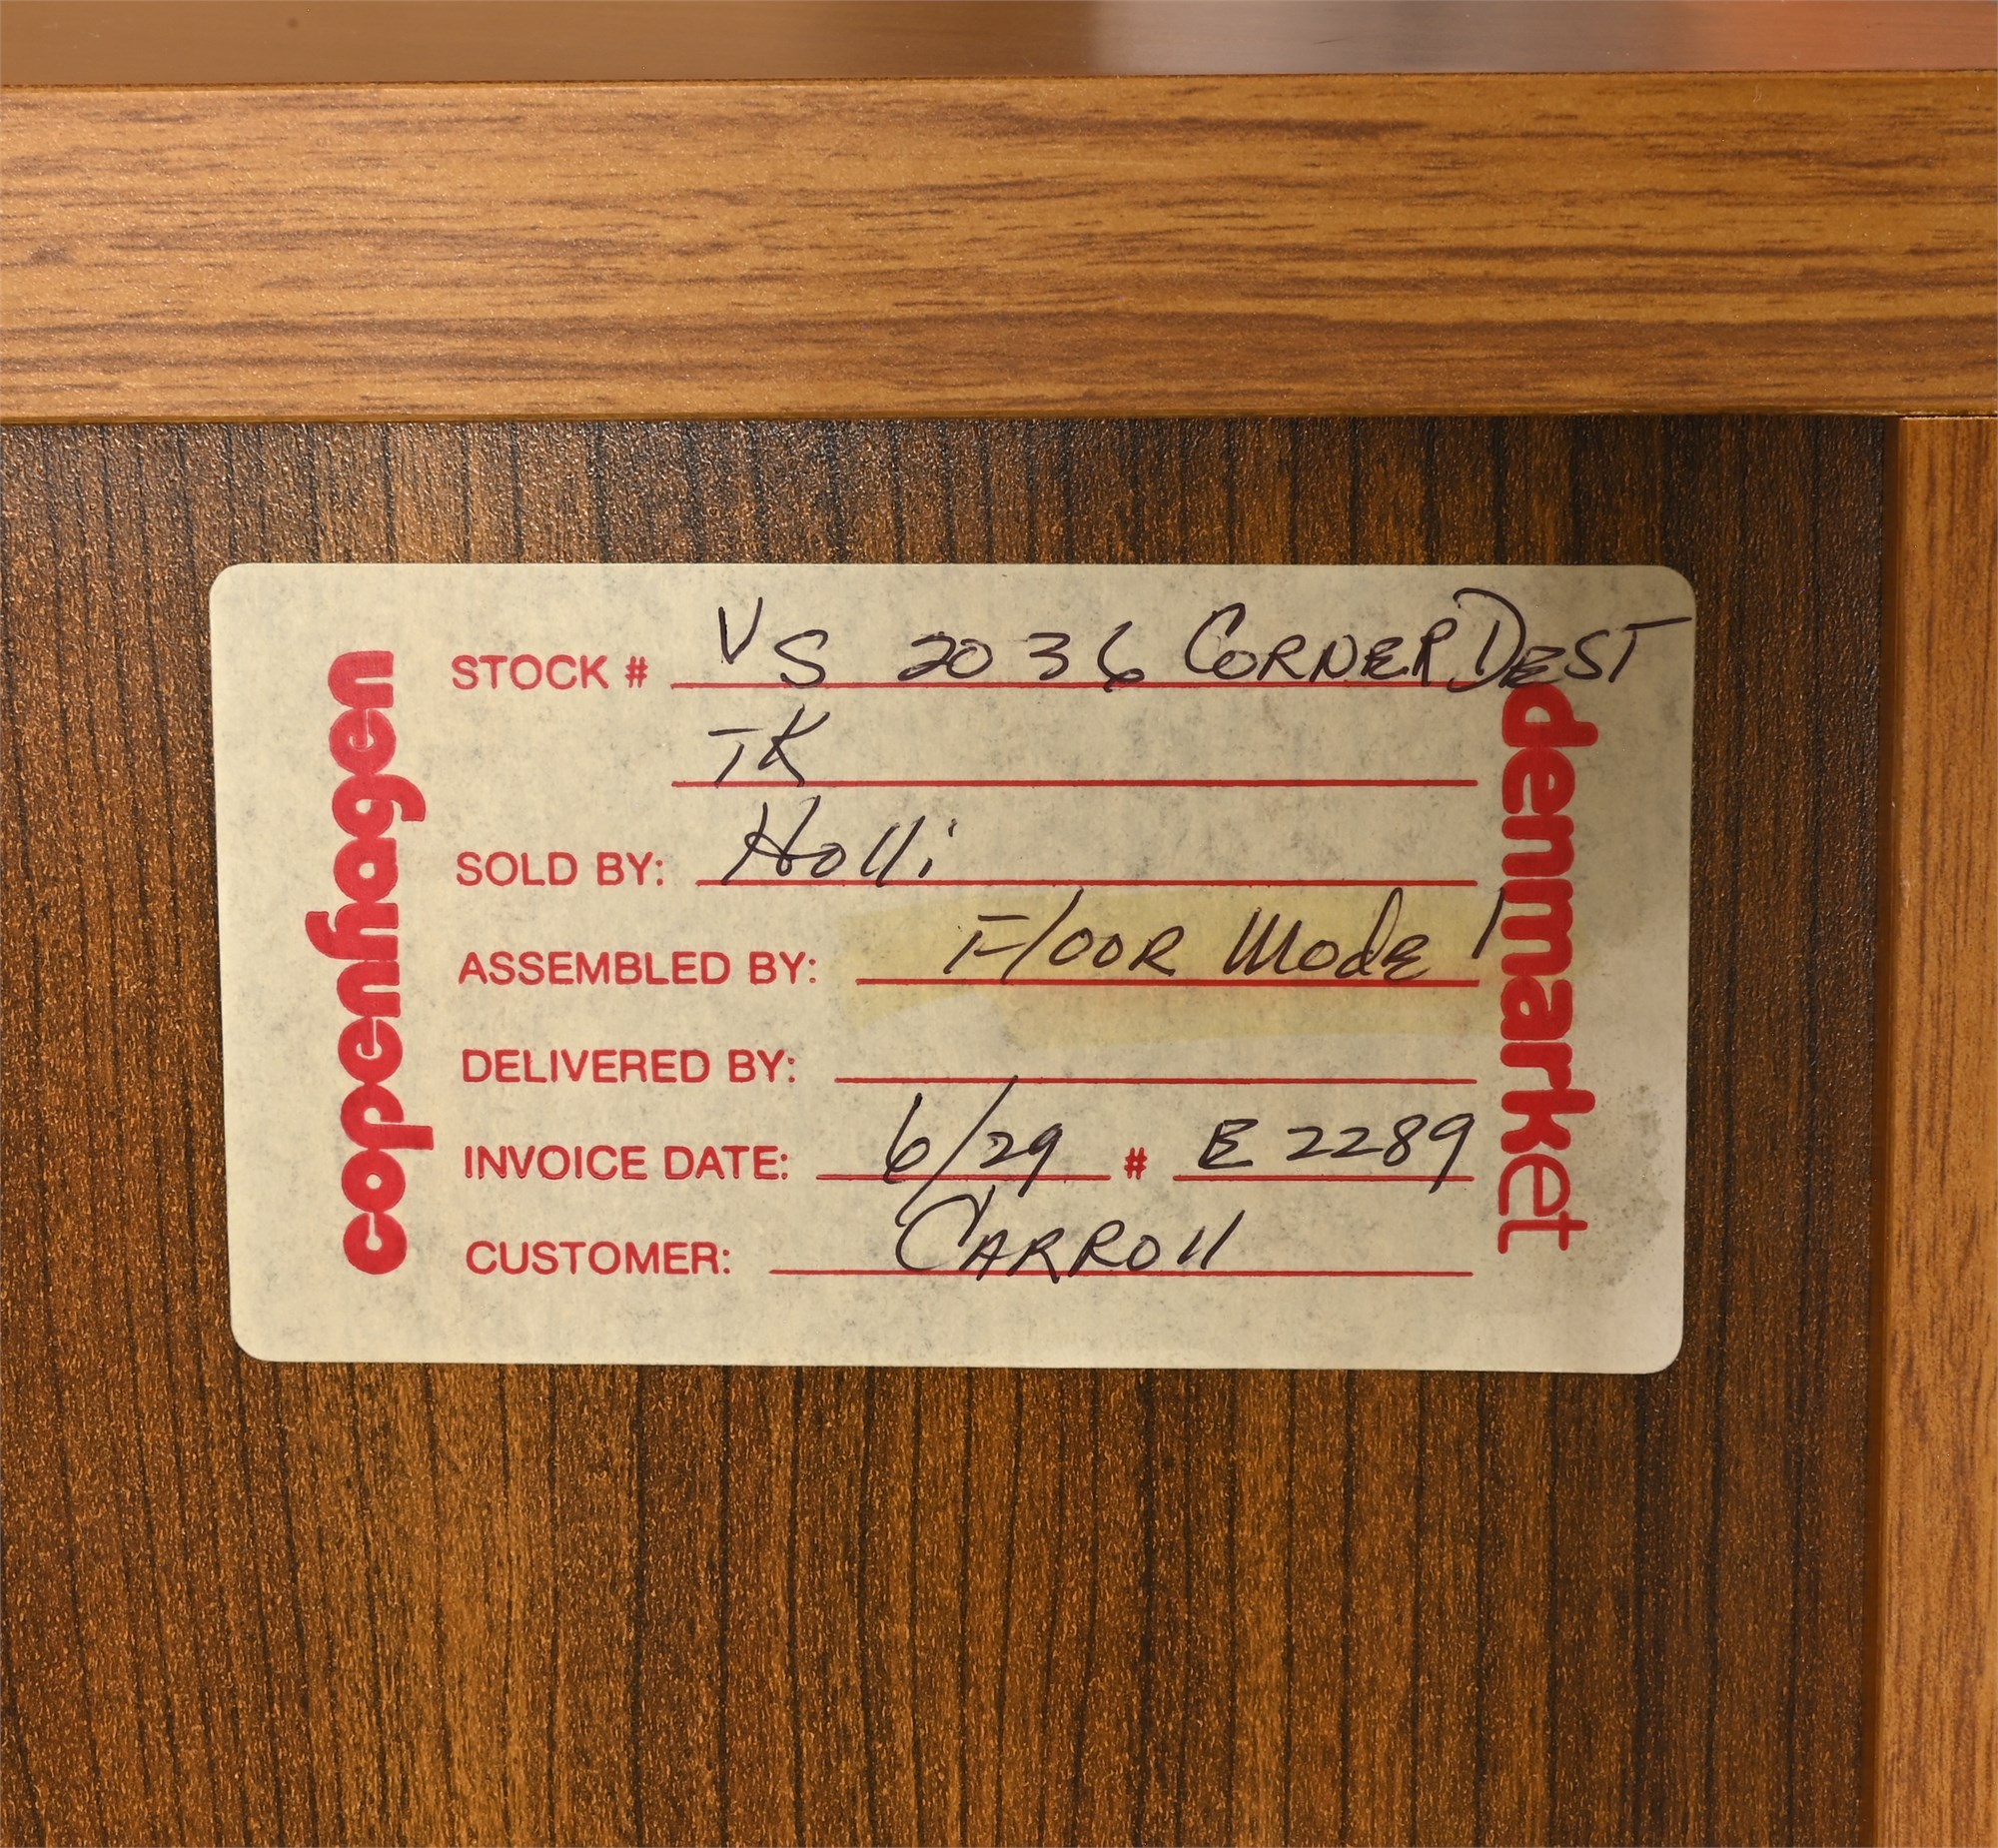 copenhagen
STOCK # VS 2036 CORNER DEST
TK
SOLD BY: Holli
ASSEMBLED BY: Floor Model
DELIVERED BY:
INVOICE DATE: 6/29 # E2289
CUSTOMER: CARROll
denmarket